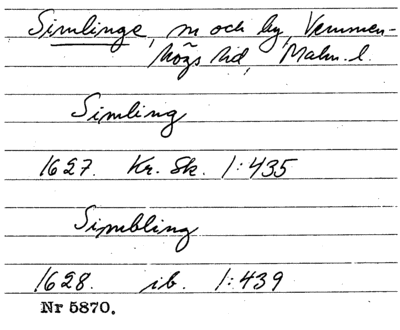 Simlinge, sn och by, Vemmen-
högs hd, Malm. l.
Simling
1627. Kr. Sk. 1:435
Simbling
1628. ib. 1:439
Nr 5870.